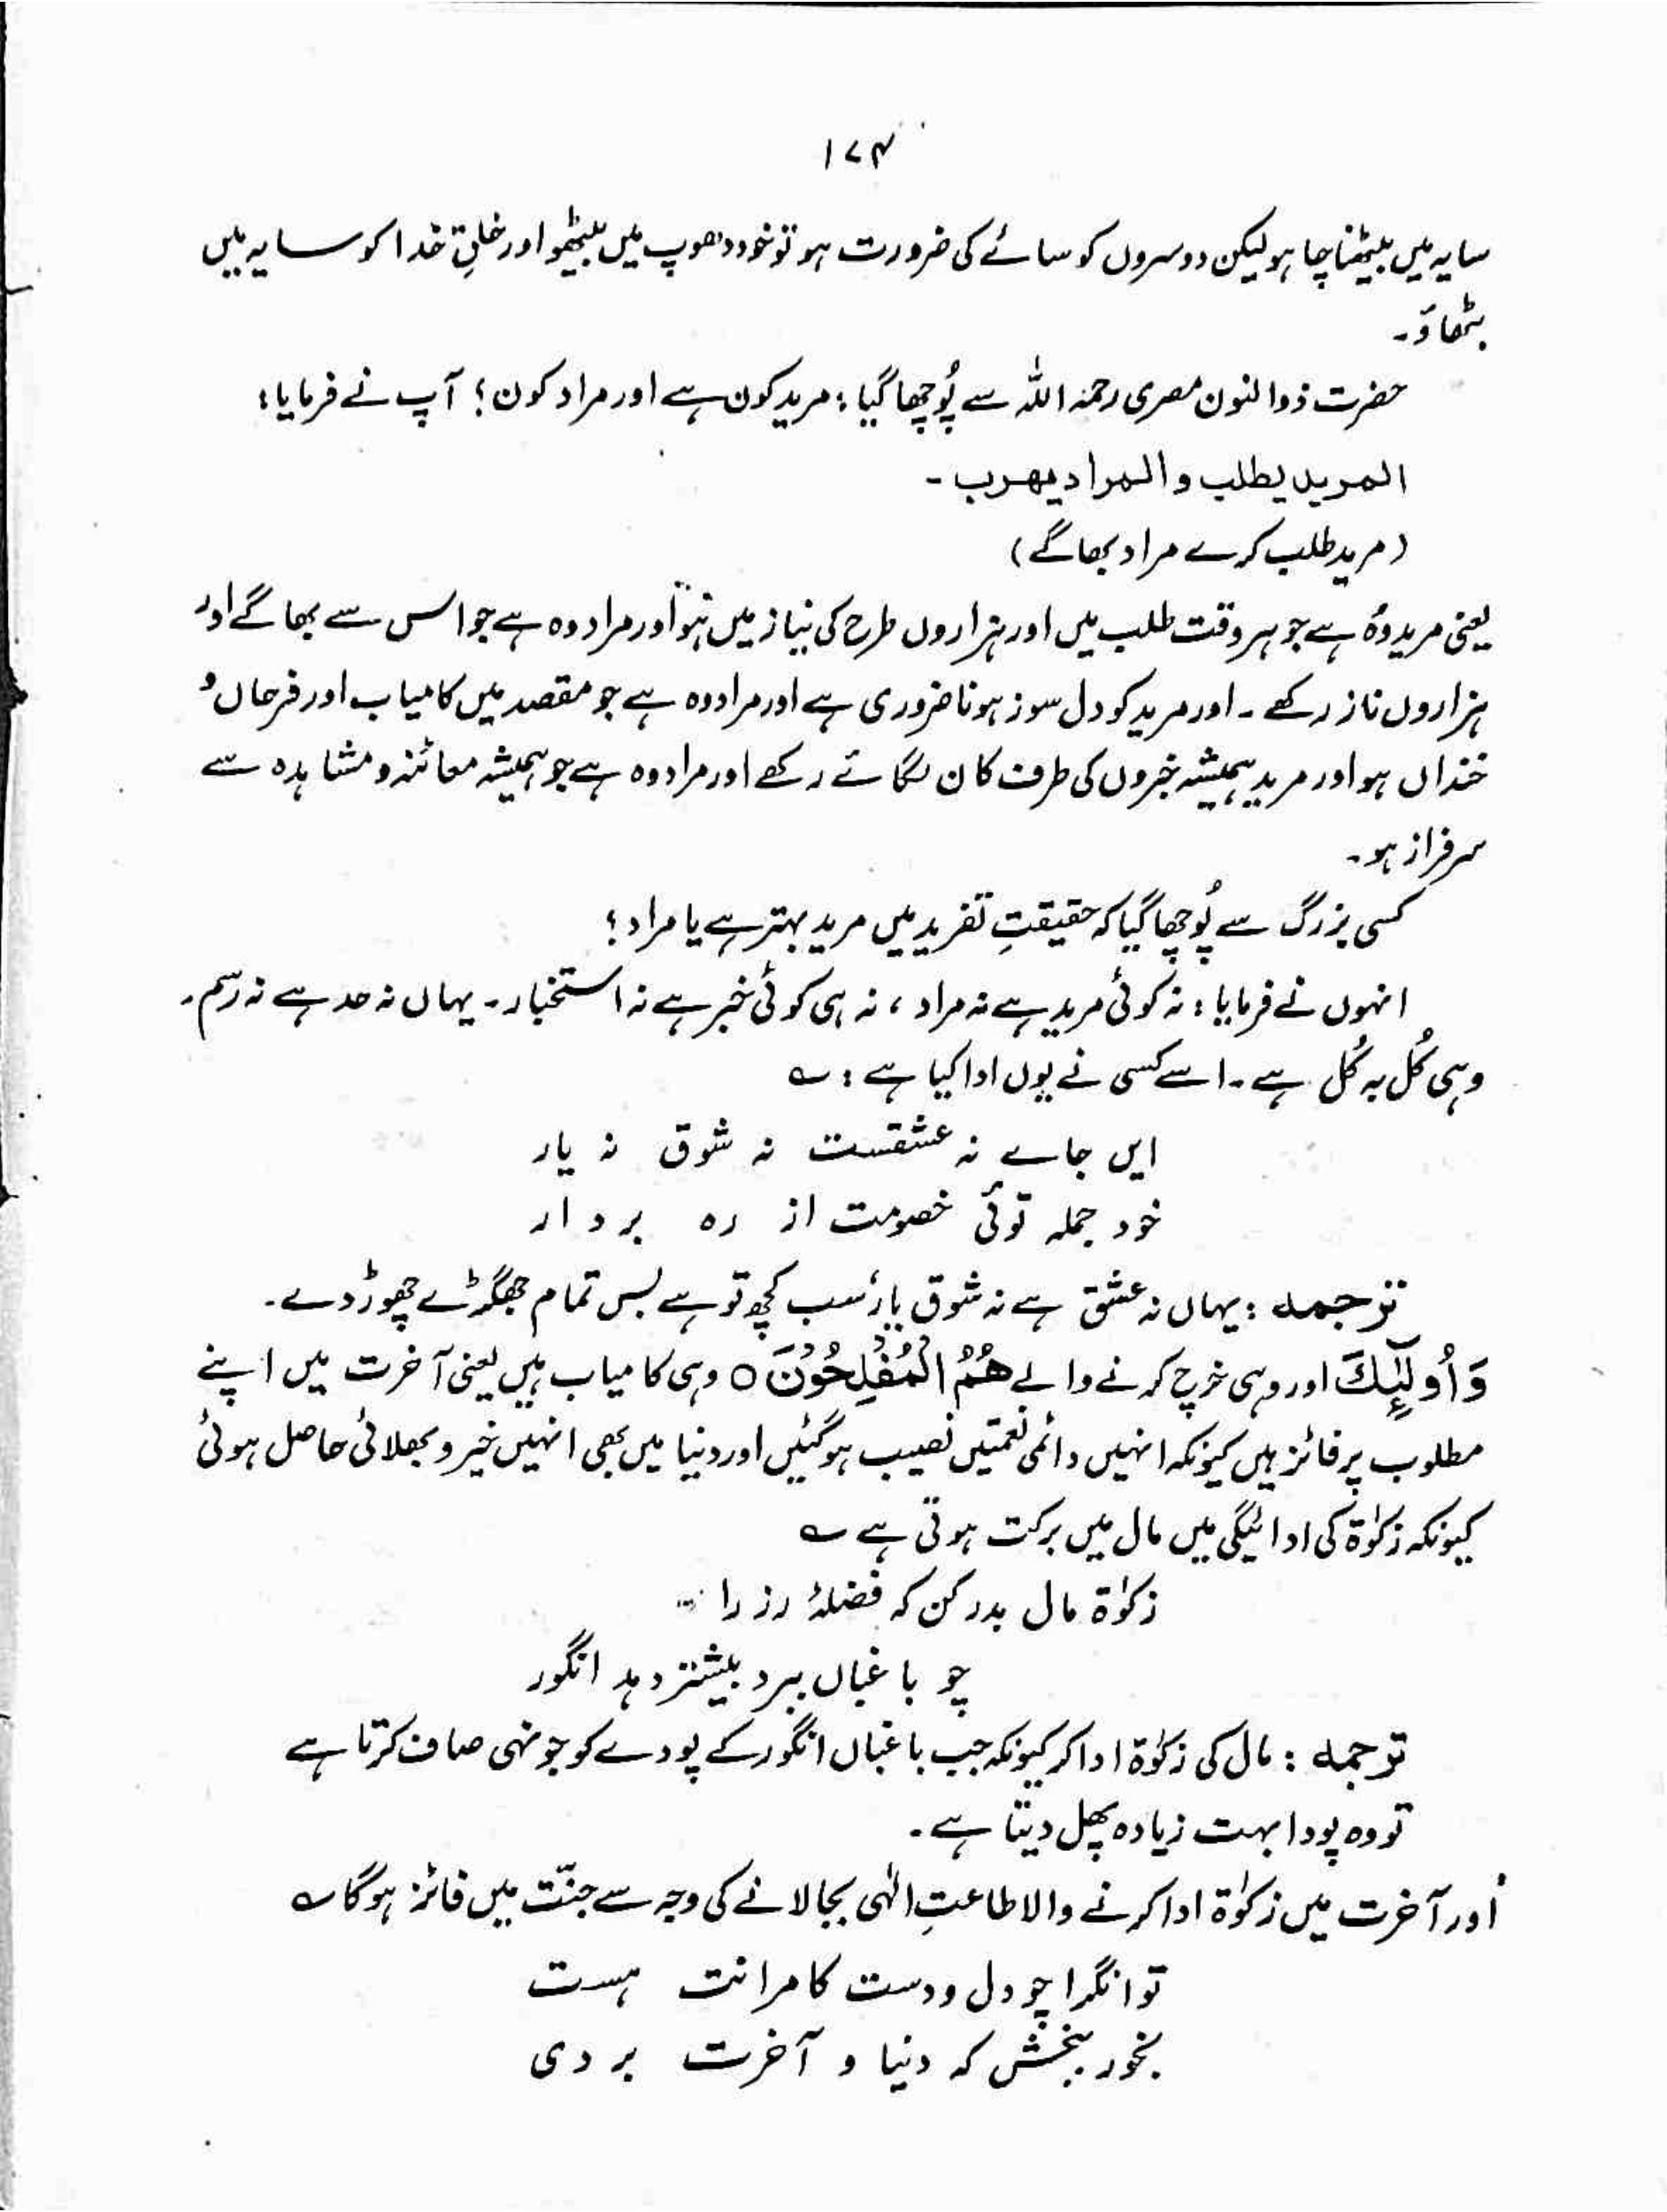 ۱۷۴
سایہ میں بیٹھنا چاہو لیکن دوسروں کو سائے کی ضرورت ہو تو خود دھوپ میں بیٹھو اور خلقِ خدا کو سایہ میں
بٹھاؤ۔
حضرت ذوالنون مصری رحمہ اللہ سے پُوچھا گیا : مرید کون ہے اور مراد کون ؟ آپ نے فرمایا :
المرید یطلب والمراد یھرب ۔
(مرید طلب کرے مراد بھاگے)
یعنی مرید وُہ ہے جو ہر وقت طلب میں اور ہزاروں طرح کی نیاز میں ہو اور مراد وہ ہے جو اس سے بھاگے اور
ہزاروں ناز رکھے ۔ اور مرید کو دل سوز ہونا ضروری ہے اور مراد وہ ہے جو مقصد میں کامیاب اور فرحاں و
خنداں ہو اور مرید ہمیشہ خبروں کی طرف کان لگائے رکھے اور مراد وہ ہے جو ہمیشہ معائنہ و مشاہدہ سے
سرفراز ہو ۔
کسی بزرگ سے پُوچھا گیا کہ حقیقتِ تفرید میں مرید بہتر ہے یا مراد ؟
انہوں نے فرمایا : نہ کوئی مرید ہے نہ مراد ، نہ ہی کوئی خبر ہے نہ استخبار ۔ یہاں نہ حد ہے نہ رسم ۔
وہی کُل بہ کُل ہے ۔ اسے کسی نے یوں ادا کیا ہے : ؎
ایں جاے نہ عشقست نہ شوق نہ یار
خود جملہ توئی خصومت از رہ بردار
ترجمہ : یہاں نہ عشق ہے نہ شوق یار، سب کچھ تو ہے بس تمام جھگڑے چھوڑ دے ۔
وَاُولٰٓئِكَ اور وہی خرچ کرنے والے هُمُ الْمُفْلِحُوْنَ ○ وہی کامیاب ہیں یعنی آخرت میں اپنے
مطلوب پر فائز ہیں کیونکہ انہیں دائمی نعمتیں نصیب ہو گئیں اور دنیا میں بھی انہیں خیر و بھلائی حاصل ہوئی
کیونکہ زکوٰۃ کی ادائیگی میں مال میں برکت ہوتی ہے ؎
زکوٰۃ مال بدر کن کہ فضلۂ رز را
چو باغباں ببرد بیشتر دہد انگور
ترجمہ : مال کی زکوٰۃ ادا کر کیونکہ جب باغباں انگور کے پودے کو جونہی صاف کرتا ہے
تو وہ پودا بہت زیادہ پھل دیتا ہے ۔
اُور آخرت میں زکوٰۃ ادا کرنے والا طاعتِ الٰہی بجا لانے کی وجہ سے جنّت میں فائز ہوگا ؎
توانگرا چو دل و دست کامرانت ہست
بخور ببخش کہ دنیا و آخرت بردی